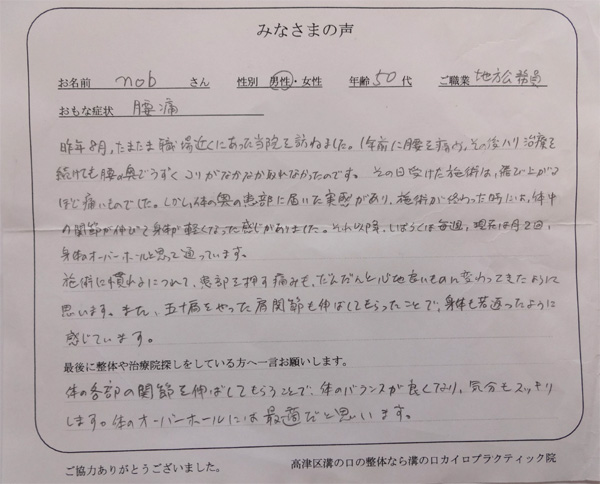 みなさまの声
お名前 nob さん 性別 男性・女性 年齢 50 代 ご職業 地方公務員
おもな症状 腰痛
昨年8月,たまたま職場近くにあった当院を訪ねました。1年前に腰を痛め,その後ハリ治療を
続けても腰の奥でうずくコリがなかなかとれなかったのです。その日受けた施術は,飛び上がる
ほど痛いものでした。しかし,体の奥の患部に届いた実感があり,施術が終わった時には,体中
の関節が伸びて身体が軽くなった感じがありました。それ以降,しばらくは毎週,現在は月2回,
身体のオーバーホールと思って通っています。
施術に慣れるにつれて,患部を押す痛みも,だんだんと心地良いものに変わってきたように
思います。また,五十肩をやった肩関節も伸ばしてもらったことで,身体も若返ったように
感じています。
最後に整体や治療院探しをしている方へ一言お願いします。
体の各部の関節を伸ばしてもらうことで,体のバランスが良くなり,気分もスッキリ
します。体のオーバーホールには最適だと思います。
ご協力ありがとうございました。 高津区溝の口の整体なら溝の口カイロプラクティック院